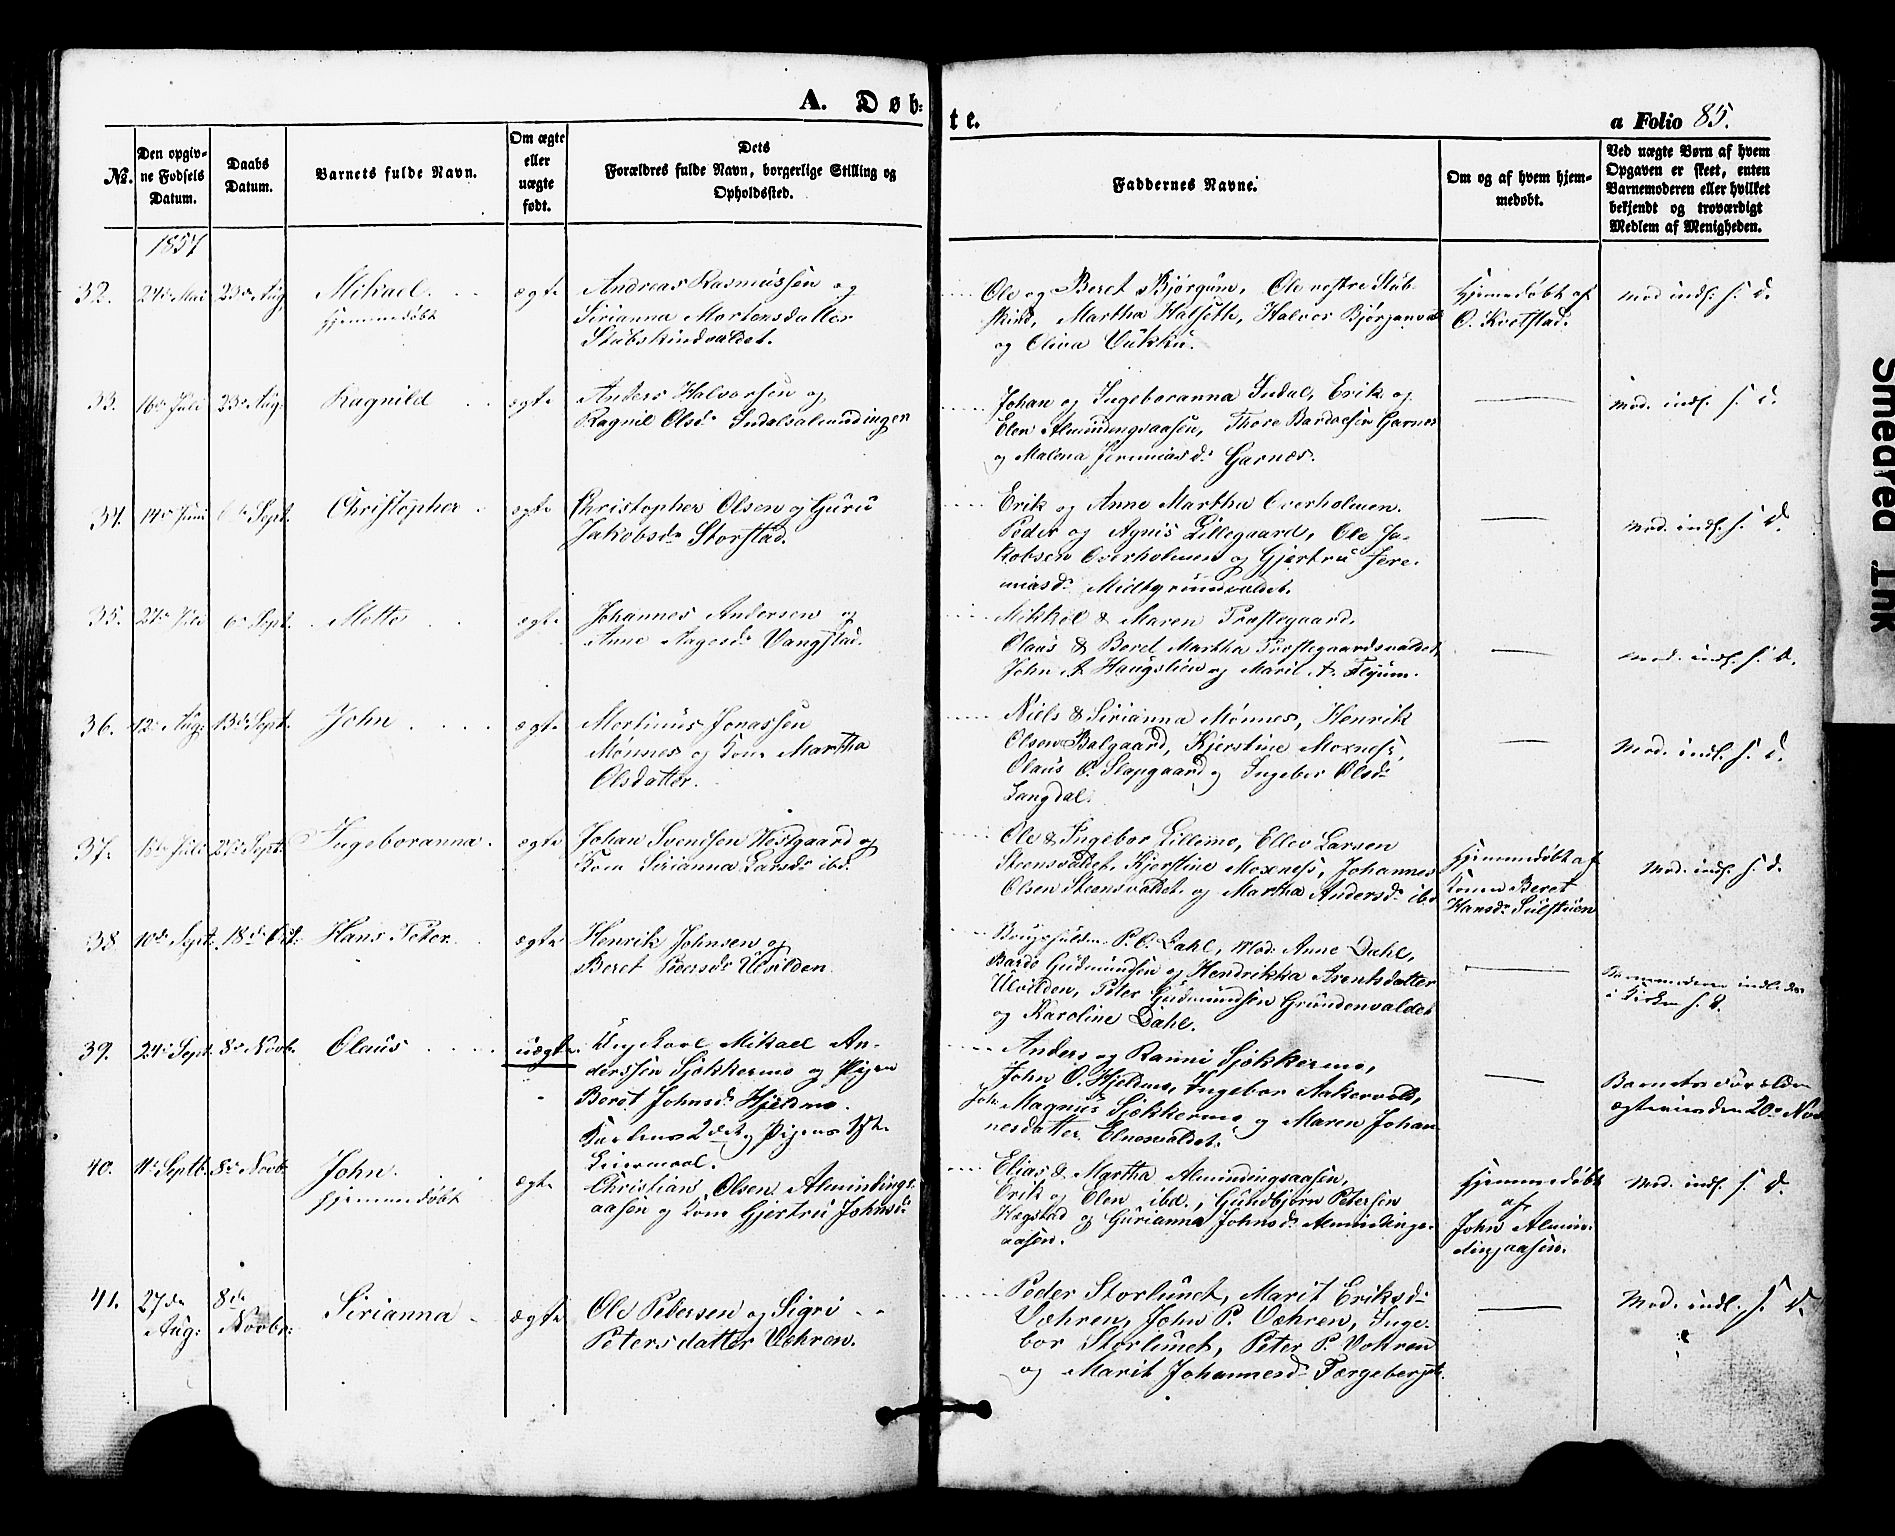 A. Døb:
te.
a Folio 85.
No.
Den opgiv-
ne Fødsels
Datum.
Daabs
Datum.
Barnets fulde Navn.
Om ægte
eller
uægte
født.
Dets
Forældres fulde Navn, borgerlige Stilling og
Opholdssted.
Faddernes Navne.
Om og af hvem hjem-
medøbt.
Ved uægte Børn af hvem
Opgaven er skeet, enten
Barnemoderen eller hvilket
bekjendt og troværdigt
Medlem af Menigheden.
1857
32. 24de Mai 23de Aug Mikael.
hjemmedøbt
ægte
Andreas Rasmussen og
Sirianna Mortensdatter
Stubskindvaldet.
Ole og Beret Bjørgum, Ole vestre Stub-
skind, Martha Halseth, Halvor Bjørganvald
og Oliva Vukku.
Hjemmedøbt af
O. Kvelstad.
Mod. indl. s. D.
33. 16de Juli 23de Aug. Ragnild ægte
Anders Halvorsen og
Ragnil Olsdr Indalsalmindingen
Johan og Ingeboranna Indal, Erik og
Elen Almindingsaasen, Thore Bardoesen Garnes
og Malena Jeremiasdr Garnæs.
Mod. indl. s. D.
34. 14de Juni 6de Sept. Christopher ægte
Christopher Olsen og Guru
Jakobsdr Storstad.
Erik og Anne Martha Overholmen.
Peder og Agnis Lillegaard, Ole Ja-
kobsen Overholmen og Gjertru Jere-
miasdr Midtgrundvaldet.
Mod. indl. s. D.
35. 6te Sept. Mette ægte
Johannes Andersen og
Anne Aagesdr Vangstad.
Mikkel & Maren Præstegaard.
Olaus & Beret Martha Præstegaardsvaldet,
John A Haugslien og Marit A. Flyum.
Mod. indl. s. D.
36. 12te Aug: 13de Sept. John ægte
Mortinus Jonassen
Mønnes og Kone Martha
Olsdatter.
Niels & Sirianna Mønnes, Henrik
Olsen Balgaard, Kjerstine Moxness,
Olaus O. Slapgaard og Ingebor Olsdr
Langdal.
Mod. indl. s. D.
37. Juli Sept. Ingeboranna. ægte
Johan Svendsen Vestgaard og
Kone Sirianna Larsdr ibd.
Ole & Ingebor Lillemo, Ellev Larsen
Steensvaldet, Kjerstine Moxness, Johannes
Olsen Steensvaldet og Martha Andersdr ibd
Hjemmedøbt af
Konen Beret
Hansdr Sulstuen
Mod. indl. s. D.
38. 10de Sept. 18de Oct: Hans Peter. ægte
Henrik Johnsen og
Beret Pedersdr Ulvilden.
P. O. Dahl, Mad. Anne Dahl,
Bardo Gudmundsen og Hendrikka Arentsdatter
Ulvilden, Peter Gudmundsen Grundenvaldet
og Karoline Dahl.
Barnemoderen indl.
i Kirken s. D.
39. 24de Sept. 8de Novb. Olaus uægte.
Ung Karl Mikael An-
derssen Sjøkkermo og Pigen
Beret Johnsdr Hjeldmo.
Karlens 2det og Pigens 1ste
Leiermaal.
Anders og Ranni Sjøkkermo,
John O. Hjeldmo, Ingebor Aakervold,
Joh. Magnus Sjøkkermo og Maren Johan-
nesdatter Elnesvaldet.
Barnets Forældre
ægteviedes 20de Novb
40. 11te Septb. 8de Novb. John.
hjemmedøbt
ægte
Christian Olsen Alminding-
aasen og Kone Gjertru Johnsdr
Elias & Martha Almindingsaasen,
Erik og Elen ibd., Gundbjørn Petersen
Hægstad og Gurianna Johnsdr Almindings-
aasen.
Hjemmedøbt
af
John Almin-
dingsaasen.
Mod. indl. s. D.
41. 27de
Aug:
8de
Novbr:
Sirianna ægte
Ole Pedersen og Sigri
Petersdatter Vehren.
Peder Storlunet, Marit Eriksdr
Vehren, John P. Vehren, Inge-
bor Storlunet, Peter P. Vehren
og Marit Johannesdr
Mod. indl. s. D.
Smeared Ink